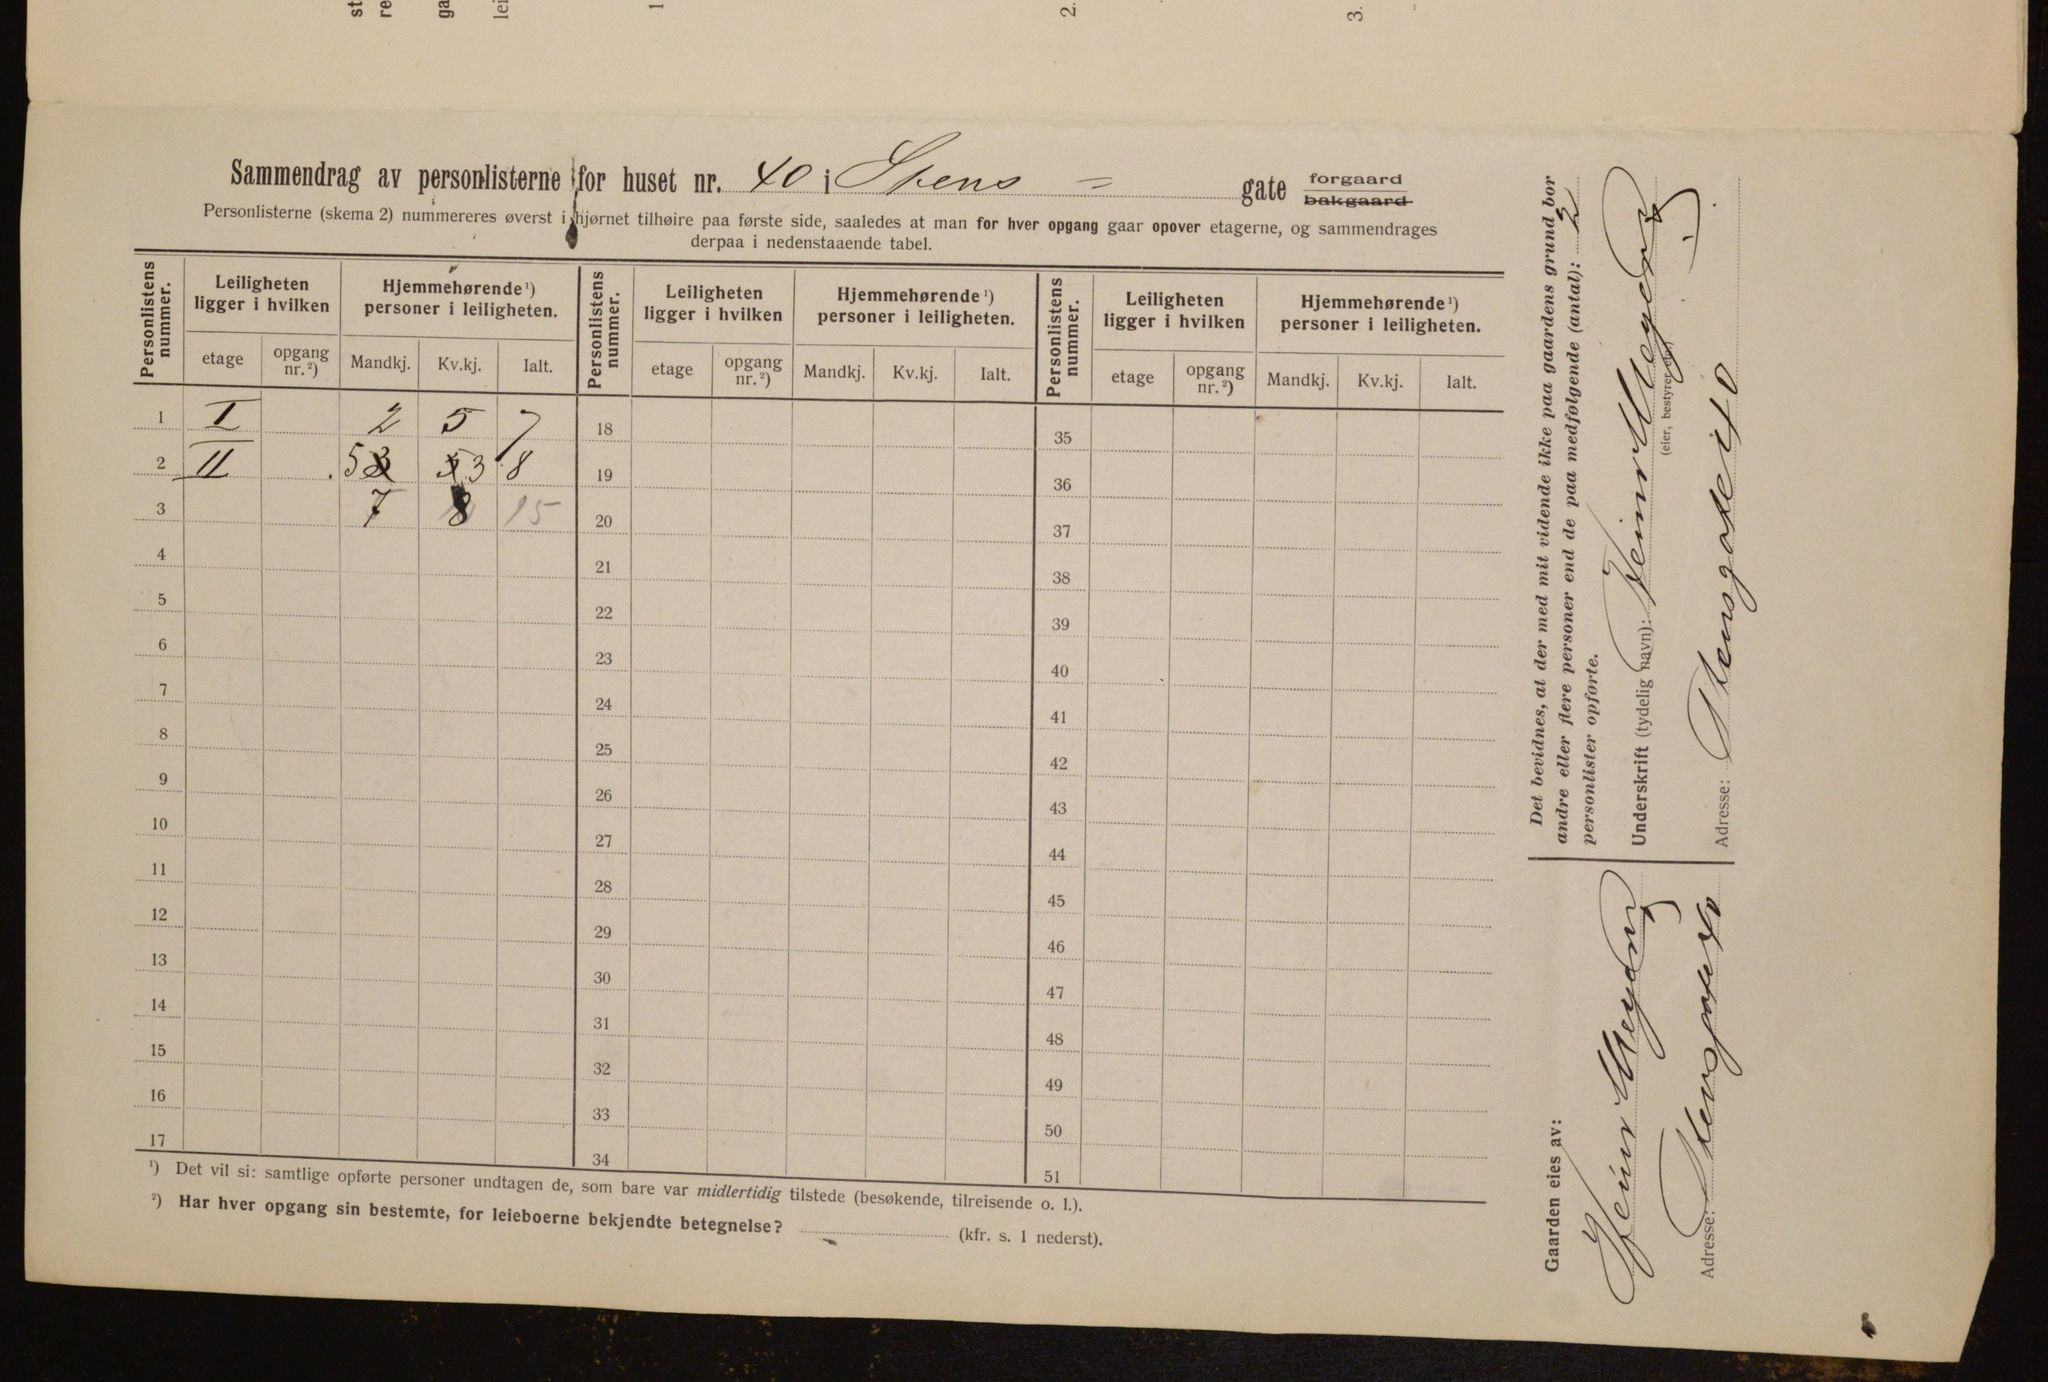 st
re
ga
lei
1
2.
3.
Sammendrag av personlisterne for huset nr. 40 i Stens = gate forgaard bakgaard
Personlisterne (skema 2) nummereres øverst i hjørnet tilhøire paa første side, saaledes at man for hver opgang gaar opover etagerne, og sammendrages
derpaa i nedenstaaende tabel.
Personlistens nummer. Leiligheten ligger i hvilken Hjemmehørende ¹) personer i leiligheten. Personlistens nummer. Leiligheten ligger i hvilken Hjemmehørende ¹) personer i leiligheten. Personlistens nummer. Leiligheten ligger i hvilken Hjemmehørende ¹) personer i leiligheten.
etage opgang nr. ²) Mandkj. Kv.kj. Ialt. etage opgang nr. ²) Mandkj. Kv.kj. Ialt. etage opgang nr. ²) Mandkj. Kv.kj. Ialt.
1 I 2 5 7 18 35
2 II 5 3 5 3 8 19 36
3 7 8 15 20 37
4 21 38
5 22 39
6 23 40
7 24 41
8 25 42
9 26 43
10 27 44
11 28 45
12 29 46
13 30 47
14 31 48
15 32 49
16 33 50
17 34 51
¹) Det vil si: samtlige opførte personer undtagen de, som bare var midlertidig tilstede (besøkende, tilreisende o. l.).
²) Har hver opgang sin bestemte, for leieboerne bekjendte betegnelse? (kfr. s. 1 nederst).
Gaarden eies av:
Heinr Meyer
Adresse: Stensgate 40
Det bevidnes, at der med mit vidende ikke paa gaardens grund bor
andre eller flere personer end de paa medfølgende (antal): 2
personlister opførte.
Underskrift (tydelig navn): Heinr Meyer
(eier, bestyrer etc.)
Adresse: Stensgate 40